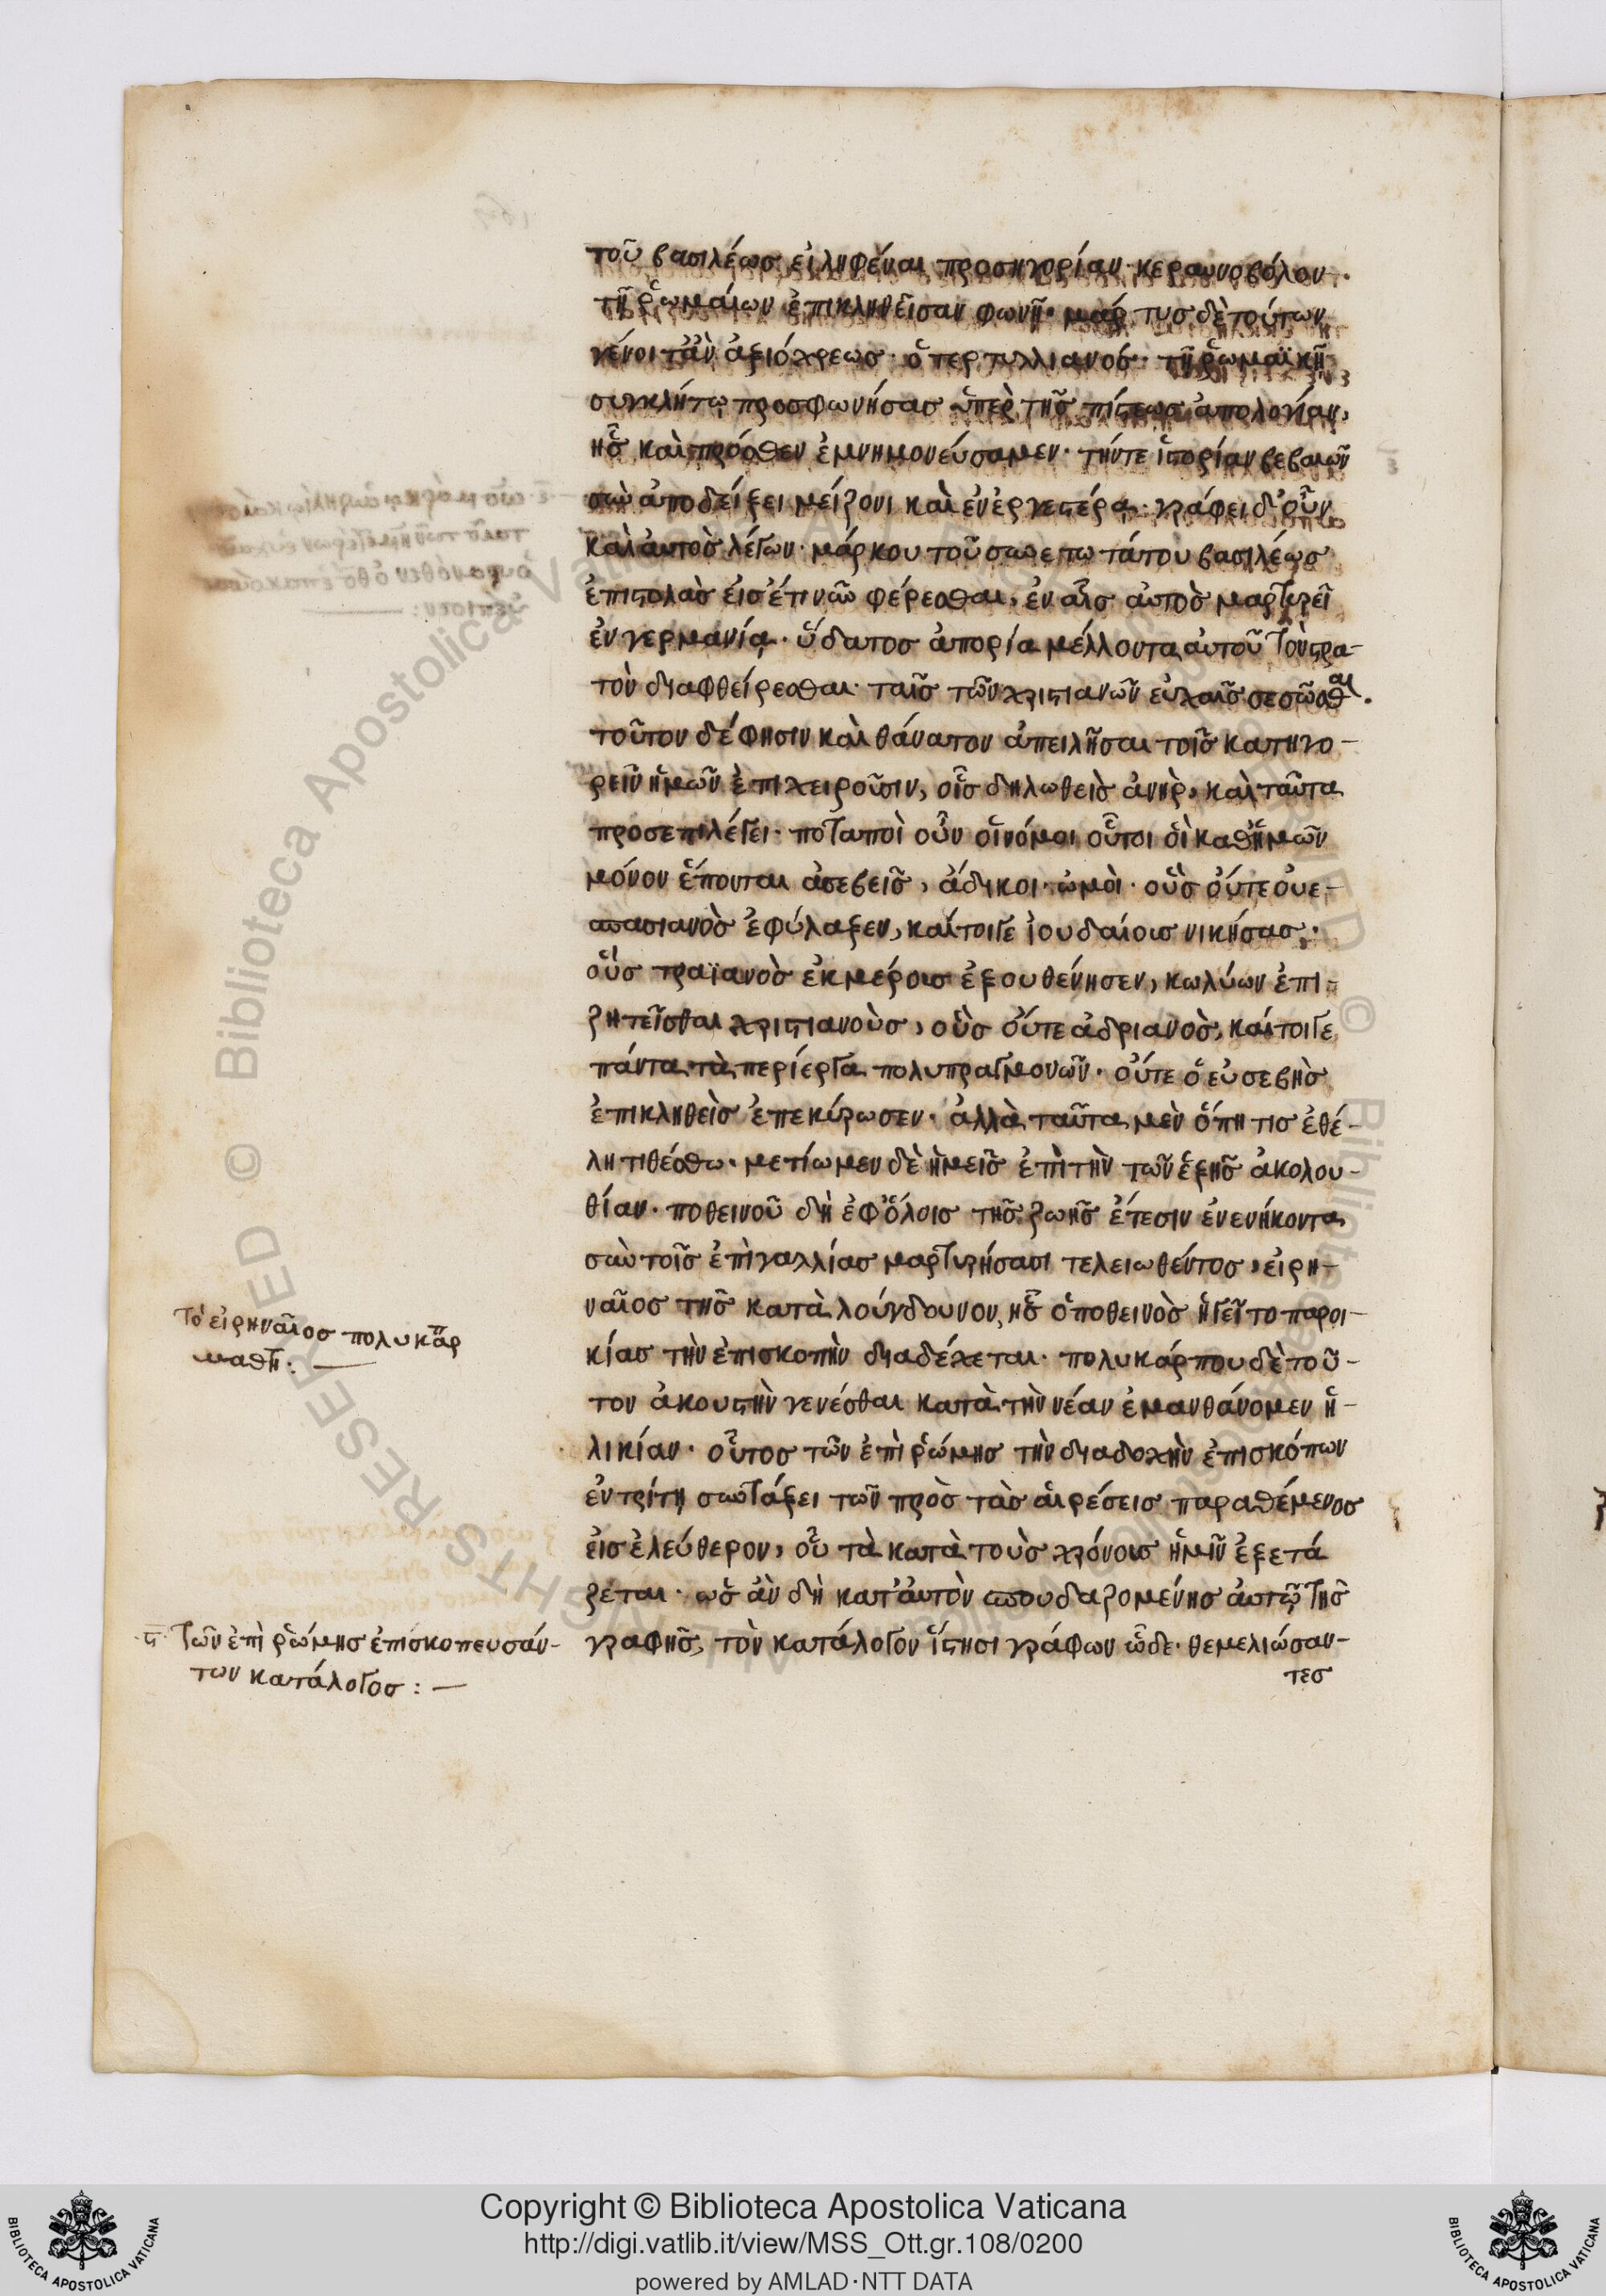 τοῦ βασιλέωσ εἰληφέναι προσηγορίαν· κεραυνοβόλον·
τῇ ῥωμαίων ἐπικληθεῖσαν φωνῇ· μάρτυσ δὲ τούτων
γένοιτ' ἂν ἀξιόχρεωσ· ὁ τερτυλλιανόσ· τῇ ῥωμαϊκῇ
συγκλήτω προσφωνήσασ ὑπὲρ τῆσ πίστεωσ ἀπολογίαν,
ἧσ καὶ πρόσθεν ἐμνημονεύσαμεν· τήν τε ἱστορίαν βεβαιῶν
σὺν ἀποδείξει μείζονι καὶ ἐνεργεστέρα· γράφει δ' οὖν
καὶ αὐτὸσ λέγων· μάρκου τοῦ συνετωτάτου βασιλέωσ
ἐπιστολὰσ εἰσέτι νῦν φέρεσθαι, ἐν αἷσ αὐτὸσ μαρτυρεῖ
ἐν γερμανία· ὕδατοσ ἀπορία μέλλοντα αὐτοῦ τὸν στρα-
τὸν διαφθείρεσθαι· ταῖσ τῶν χριστιανῶν εὐχαῖσ σεσῶσθαι·
τοῦτον δέ φησιν καὶ θάνατον ἀπειλῆσαι τοῖσ κατηγο-
ρεῖν ἡμῶν ἐπιχειροῦσιν, οἷσ δηλωθεὶσ ἀνὴρ, καὶ ταῦτα
προσεπιλέγει· ποταποὶ οὖν οἱ νόμοι οὗτοι οἳ καθ' ἡμῶν
μόνον ἕπονται ἀσεβεῖσ, ἄδικοι· ὠμοὶ· οὓσ οὔτε οὐε-
σπασιανὸσ ἐφύλαξεν, καίτοιγε ἰουδαίουσ νικήσασ·
οὓσ τραϊανὸσ ἐκ μέρουσ ἐξουθένησεν, κωλύων ἐπι-
ζητεῖσθαι χριστιανοὺσ, οὓσ οὔτε ἀδριανὸσ, καίτοιγε
πάντα τὰ περίεργα πολυπραγμονῶν· οὔτε ὁ εὐσεβὴσ
ἐπικληθεὶσ ἐπεκύρωσεν· ἀλλὰ ταῦτα μὲν ὅπη τισ ἐθέ-
λη τιθέσθω· μετίωμεν δὲ ἡμεῖσ ἐπὶ τὴν τῶν ἑξῆσ ἀκολου-
θίαν· ποθεινοῦ δὴ ἐφ' ὅλοισ τῆσ ζωῆσ ἔτεσιν ἐνενήκοντα
σὺν τοῖσ ἐπὶ γαλλίασ μαρτυρήσασι τελειωθέντοσ, εἰρη-
ναῖοσ τῆσ κατὰ λούγδουνον, ἧσ ὁ ποθεινὸσ ἡγεῖτο παροι-
κίασ τὴν ἐπισκοπὴν διαδέχεται· πολυκάρπου δὲ τοῦ-
τον ἀκουστὴν γενέσθαι κατὰ τὴν νέαν ἐμανθάνομεν ἡ-
λικίαν· οὗτοσ τῶν ἐπὶ ῥώμησ τὴν διαδοχὴν ἐπισκόπων
ἐν τρίτη συντάξει τῶν πρὸσ τὰσ αἱρέσεισ παραθέμενοσ
εἰσ ἐλεύθερον, οὗ τὰ κατὰ τοὺσ χρόνουσ ἡμῖν ἐξετά
ζεται· ὡσ ἂν δὴ κατ' αὐτὸν σπουδαζομένησ αὐτῶ τῆσ
γραφῆσ, τὸν κατάλογον ἵστησι γράφων ὧδε· θεμελιώσαν-
τεσ
Τὸ εἰρηναῖοσ πολυκάρπ
μαθη: —
ϛ Τῶν ἐπὶ ῥώμησ ἐπισκοπευσάν-
των κατάλογοσ: —
Copyright © Biblioteca Apostolica Vaticana
http://digi.vatlib.it/view/MSS_Ott.gr.108/0200
powered by AMLAD·NTT DATA